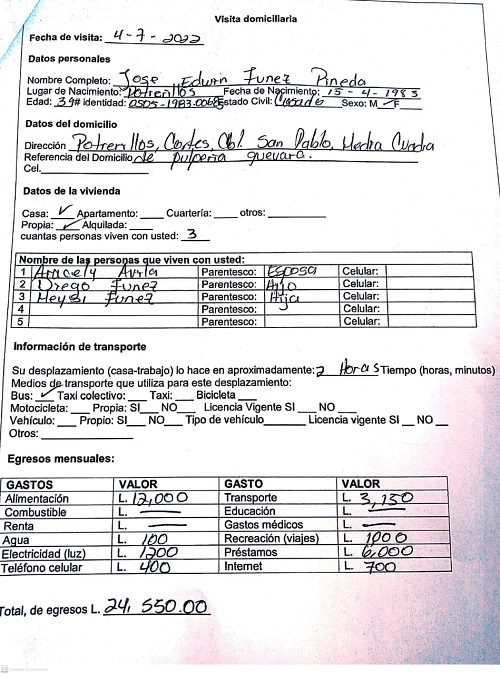 Visita domiciliaria
Fecha de visita: 4-7-2022
Datos personales
Nombre Completo: Jose Edwin Funez Pineda
Lugar de Nacimiento: Potrerillos Fecha de Nacimiento: 15-4-1983
Edad: 39 # identidad: 0505-1983-00685 Estado Civil: Casado Sexo: M ✓ F
Datos del domicilio
Dirección Potrerillos, Cortes, Col. San Pablo, Media Cuadra
Referencia del Domicilio de pulperia guevara.
Cel.
Datos de la vivienda
Casa: ✓ Apartamento: ____ Cuartería: ____ otros: ____
Propia: ✓ Alquilada: ____
cuantas personas viven con usted: 3
Nombre de las personas que viven con usted:
1 Aracely Avila Parentesco: Esposa Celular:
2 Diego Funez Parentesco: Hijo Celular:
3 Heysi Funez Parentesco: Hija Celular:
4 Parentesco: Celular:
5 Parentesco: Celular:
Información de transporte
Su desplazamiento (casa-trabajo) lo hace en aproximadamente: 2 Horas Tiempo (horas, minutos)
Medios de transporte que utiliza para este desplazamiento:
Bus: ✓ Taxi colectivo: ____ Taxi: ____ Bicicleta ____
Motocicleta: ____ Propia: SI____ NO____ Licencia Vigente SI ____ NO ____
Vehículo: ____ Propio: SI____ NO____ Tipo de vehículo____ Licencia vigente SI ____ NO ____
Otros: ____
Egresos mensuales:
GASTOS VALOR GASTO VALOR
Alimentación L. 12,000 Transporte L. 3,150
Combustible L. — Educación L. —
Renta L. — Gastos médicos L. —
Agua L. 100 Recreación (viajes) L. 1000
Electricidad (luz) L. 1200 Préstamos L. 6,000
Teléfono celular L. 400 Internet L. 700
Total, de egresos L. 24,550.00